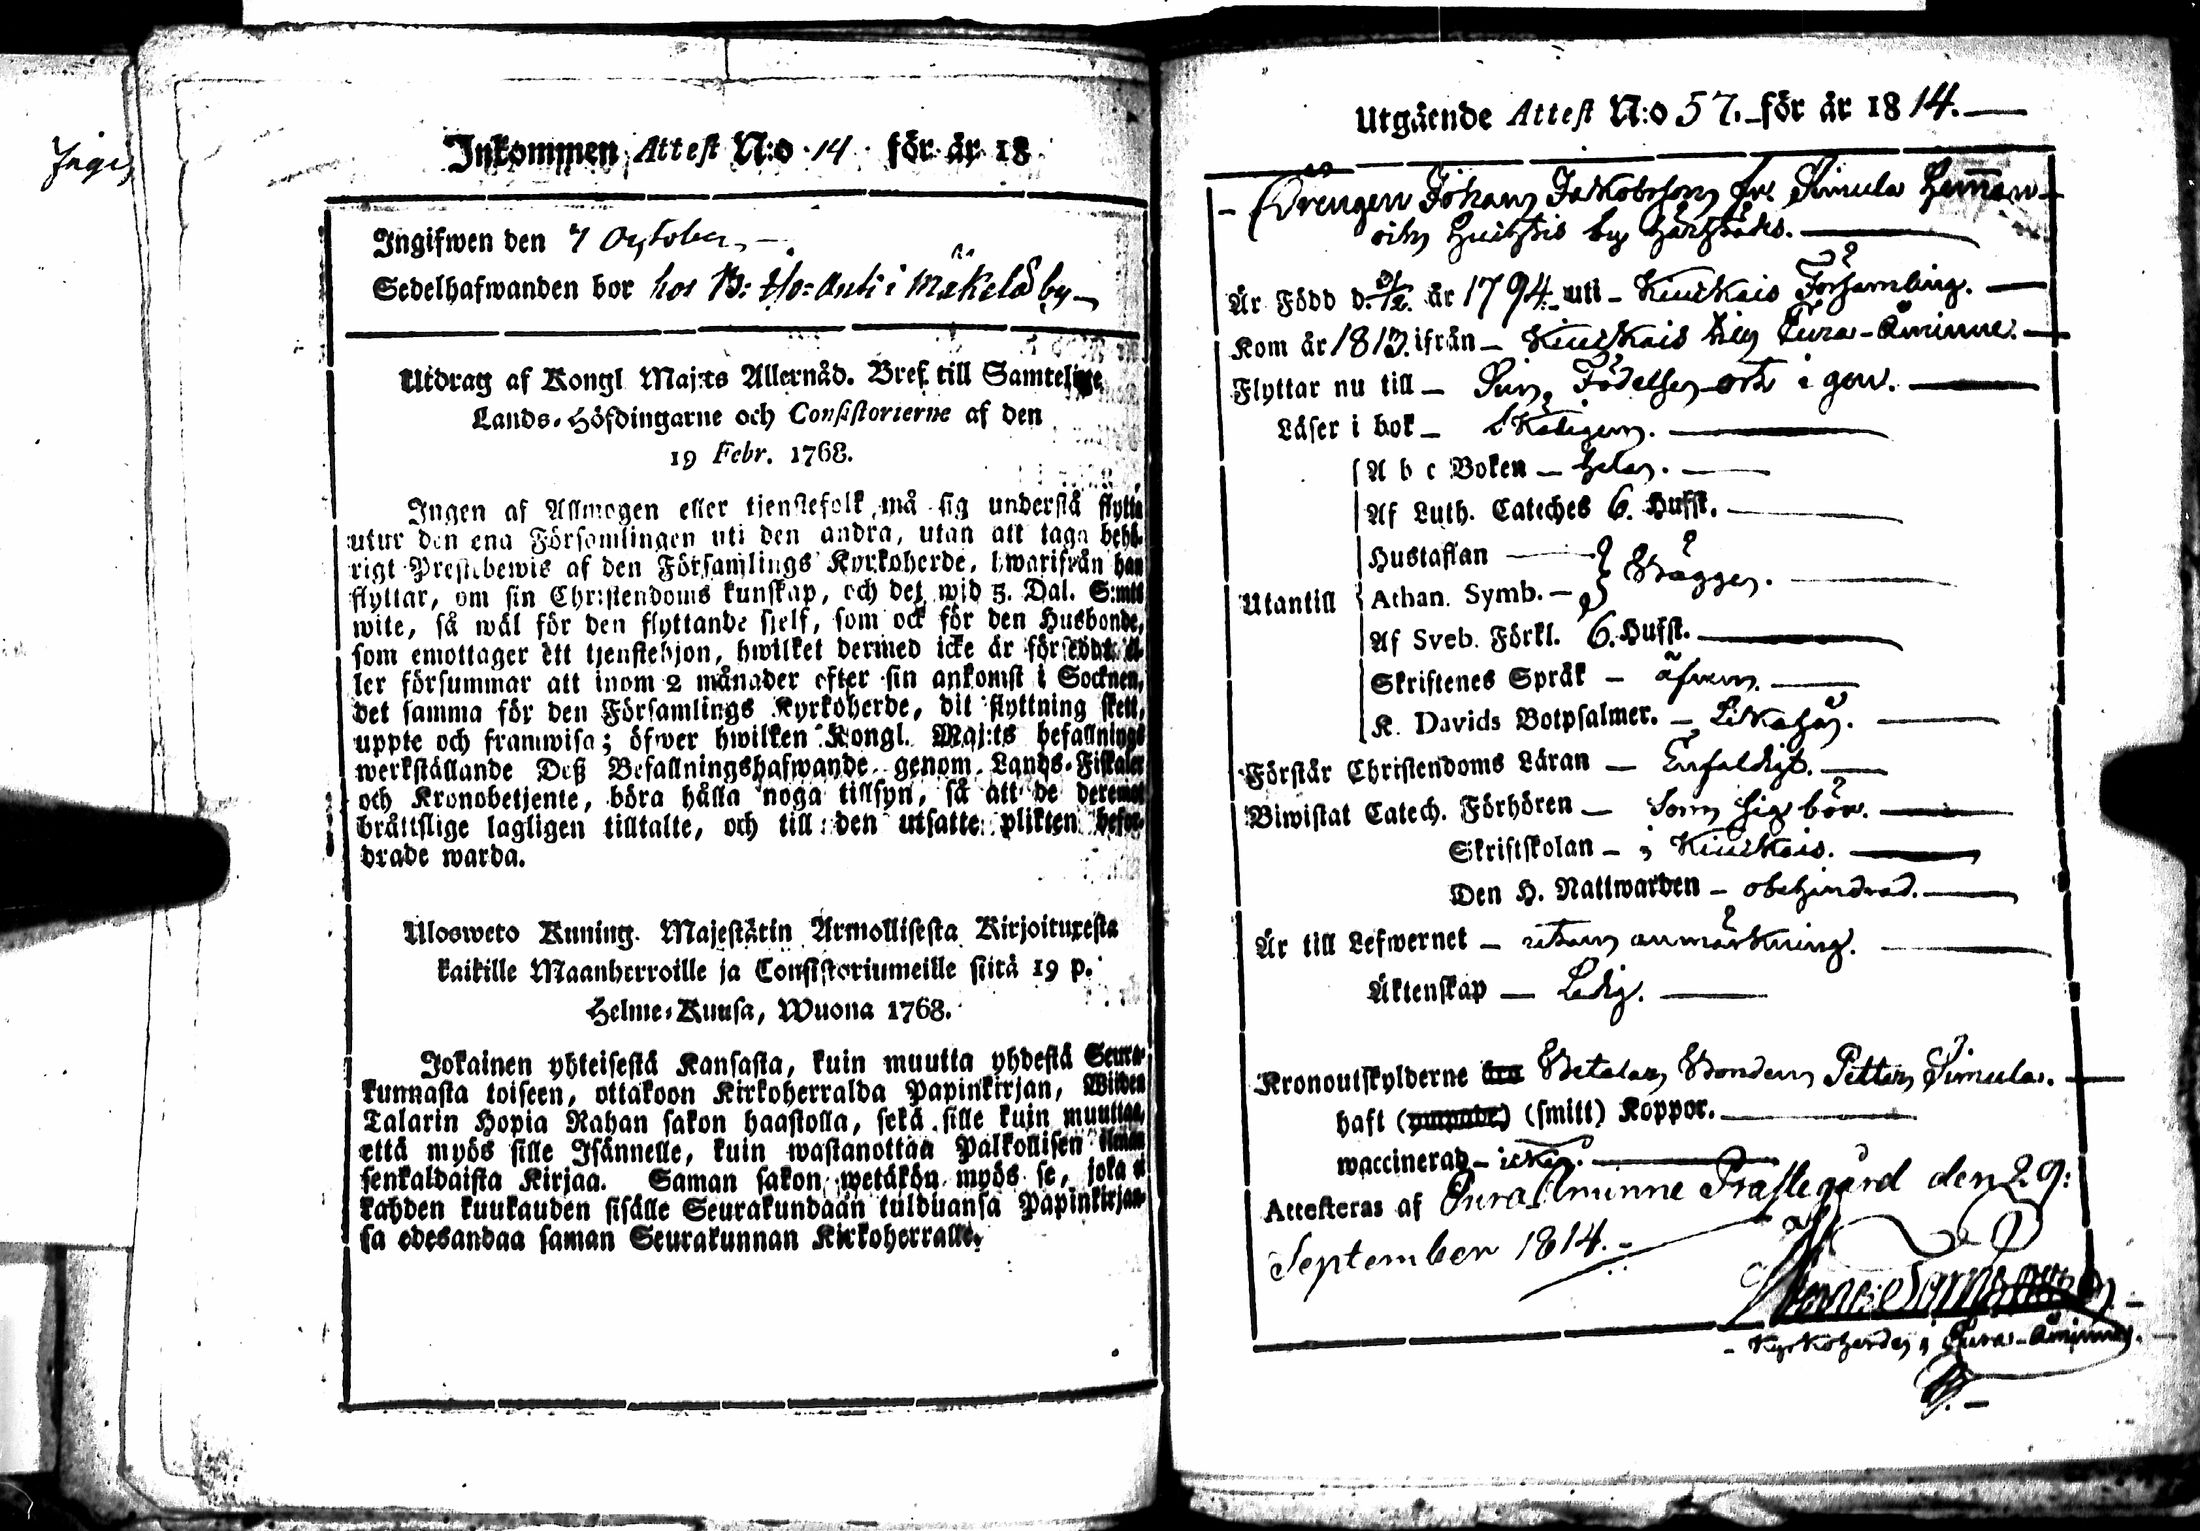 Inkommen Attest N:o 14 för år 18
Ingifwen den 7 October
Sedelhafwanden bor hos B: i Mäkelä by
Utdrag af Kongl Maj:ts Allernåd. Bref till Samtelige
Lands-Höfdingarne och Consistorierne af den
19 Febr. 1768.
Ingen af Allmogen eller tjenstefolk må sig understå flytta
utur den ena Församlingen uti den andra, utan att taga behö-
rigt Prestebewis af den Församlings Kyrkoherde, hwarifrån han
flyttar, om sin Christendoms kunskap, och det wid 3. Dal. S:mts
wite, så wäl för den flyttande sjelf, som ock för den Husbonde,
som emottager ett tjenstehjon, hwilket dermed icke är försedt el-
ler försummar att inom 2 månader efter sin ankomst i Socknen,
det samma för den Församlings Kyrkoherde, dit flyttning skett,
uppte och framwisa; öfwer hwilken Kongl. Maj:ts befallnings
werkställande Deß Befallningshafwande genom Lands-Fiskaler
och Kronobetjente, böra hålla noga tillsyn, så att de deremot
bråttslige lagligen tilltalte, och till den utsatte plikten befor-
drade warda.
Ulosweto Kuning. Majestätin Armollisesta Kirjoituxesta
kaikille Maanherroille ja Consistoriumeille siitä 19 p.
Helme-Kuusa, Wuona 1768.
Jokainen yhteisestä Kansasta, kuin muutta yhdestä Seura-
kunnasta toiseen, ottakoon Kirkoherralda Papinkirjan, Wiiden
Talarin Hopia Rahan sakon haastolla, sekä sille kuin muuttaa,
että myös sille Isännelle, kuin wastanottaa Palkollisen ilman
senkaldaista Kirjaa. Saman sakon wetäkön myös se, joka ei
kahden kuukauden sisälle Seurakundaan tulduansa Papinkirjaan-
sa edesandaa saman Seurakunnan Kirkoherralle.
Utgående Attest N:o 57. för år 1814.
Drengen Johan Jakobsson fr. Simula Hemman
och Huihtis by härstädes.
Är Född d. år 1794. uti Kiukais Församling.
Kom år 1813. ifrån Kiukais till Eura-Åminne.
Flyttar nu till Sin Födelse ort igen.
Läser i bok Skäligen.
A b c Boken hela.
Af Luth. Cateches 6. Hufst.
Hustaflan
Utantill Athan. Symb. Bägge.
Af Sveb. Förkl. 6. Hufst.
Skriftenes Språk äfven.
K. Davids Botpsalmer. Likaså.
Förstår Christendoms Läran Enfaldigt.
Biwistat Catech. Förhören Som sig bör.
Skriftskolan i Kiukais.
Den H. Nattwarden obehindrad.
Är till Lefwernet utan anmärkning.
Äktenskap Ledig.
Kronoutskylderne Betalar Bonden Petter Simula.
haft (smitt) Koppor.
waccinerad icke.
Attesteras af Eura Åminne Prästegård den 29:
September 1814.
Kyrkoherde i Eura-Åminne.